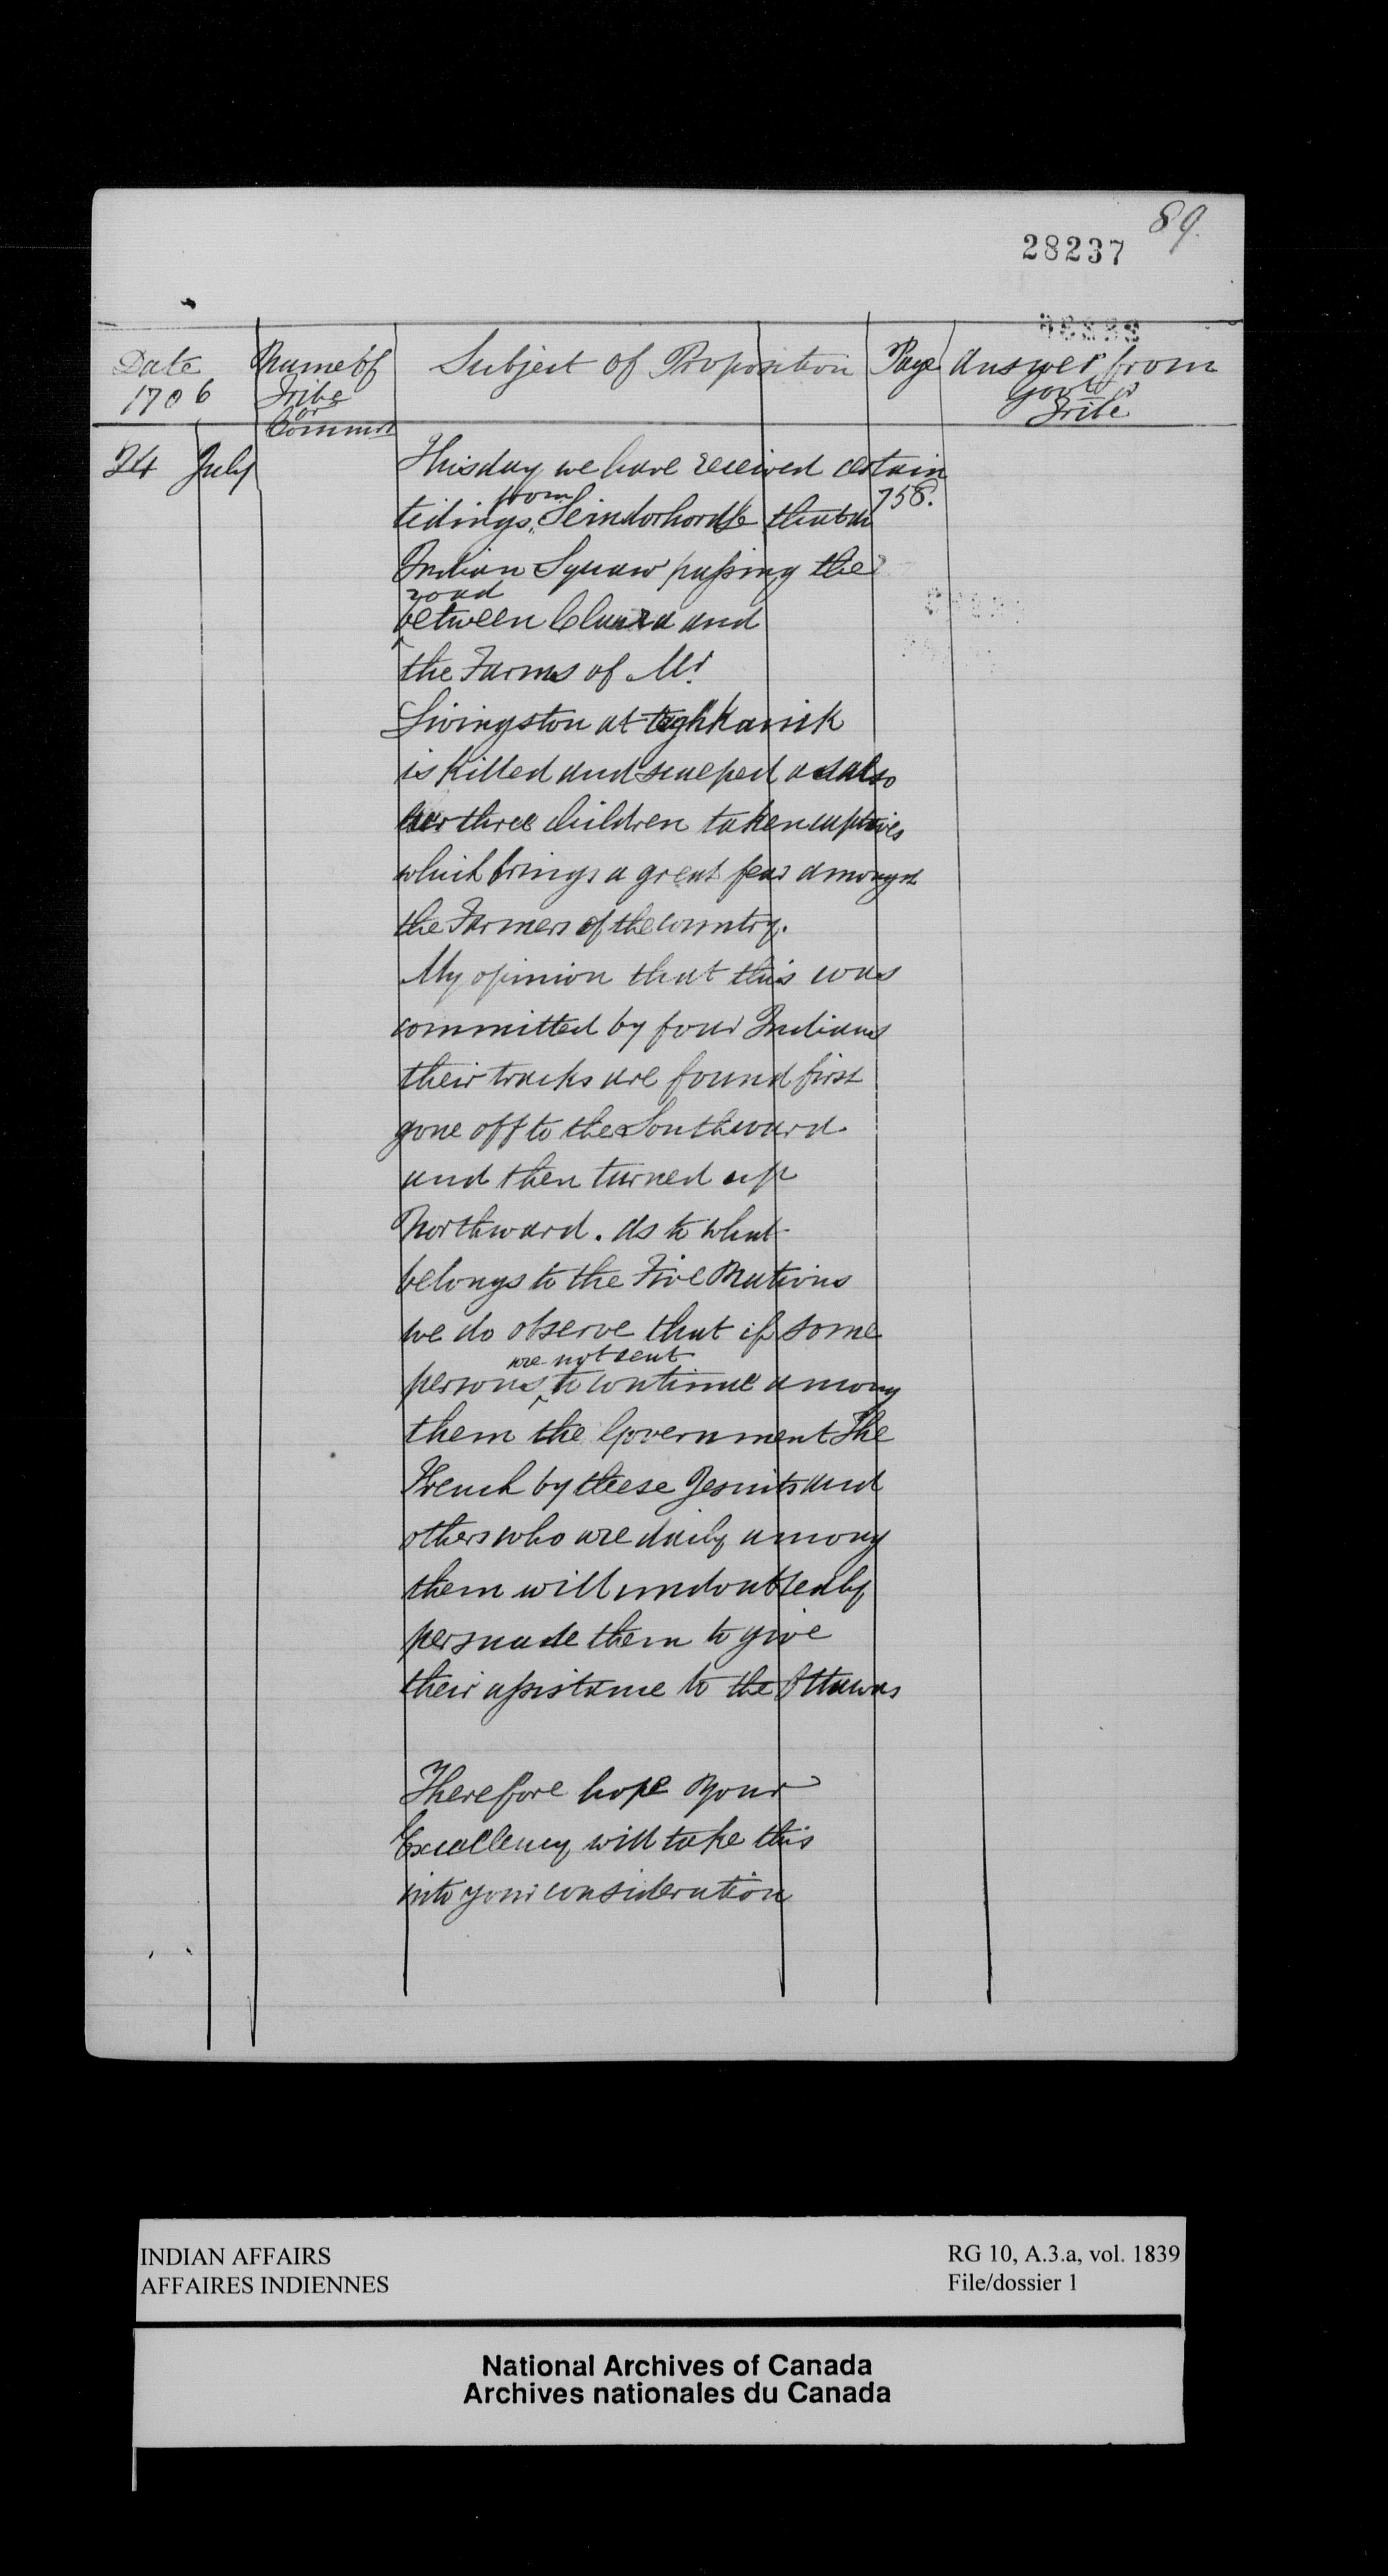 89.
28237
Date Name of Subject of Proposition Page Answer from
1706 Tribe Govt or
or Tribe
Commrs
24 July This day we have received certain
from 758.
tidings that an
Indian Squaw passing the
road
between and
the Farms of Mr
Livingston at taghkanick
is killed and scalped as also
her three children taken captives
which brings a great fear amongst
the Farmers of the country.
My opinion that this was
committed by four Indians
their tracks are found first
gone off to the Southward
and then turned up
Northward. As to what
belongs to the Five Nations
we do observe that if some
are not sent
persons ^ to continue among
them the Government The
French by these Jesuits and
others who are daily among
them will undoubtedly
persuade them to give
their assistance to the Ottawas
Therefore hope your
Excellency will take this
into your consideration
INDIAN AFFAIRS RG 10, A.3.a, vol. 1839
AFFAIRES INDIENNES File/dossier 1
National Archives of Canada
Archives nationales du Canada